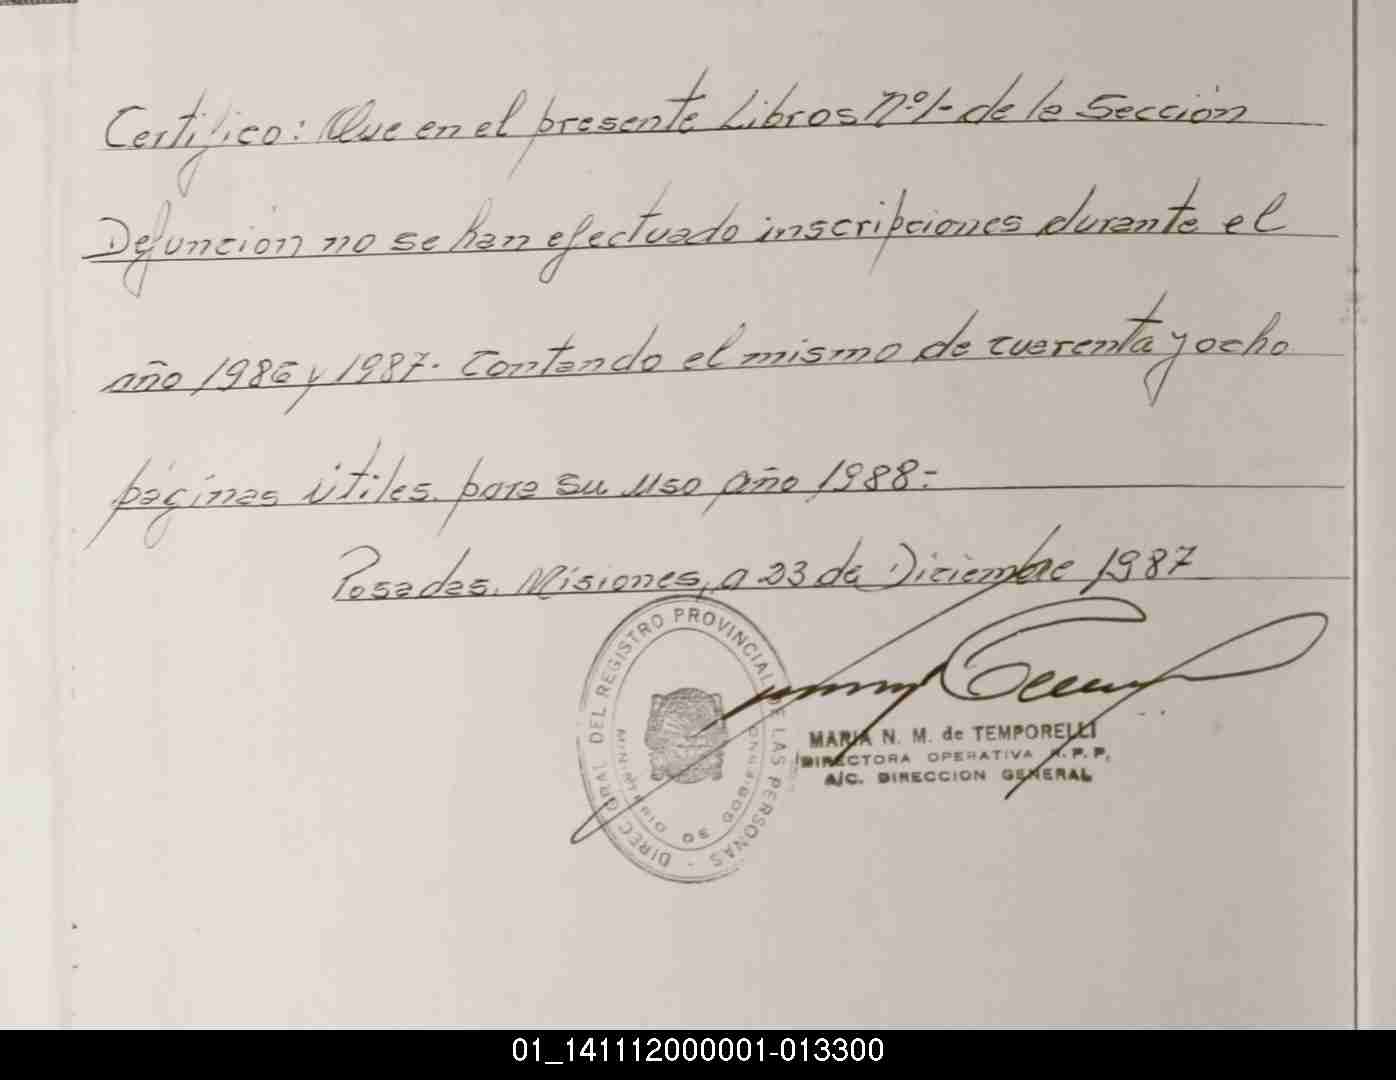 Certifico: Que en el presente Libros Nº1- de la Sección
Defunción no se han efectuado inscripciones durante el
año 1986 y 1987. Contando el mismo de cuarenta y ocho
páginas útiles. para su uso año 1988=
Posadas. Misiones, a 23 de Diciembre 1987
DIREC. GRAL DEL REGISTRO PROVINCIAL DE LAS PERSONAS -
MARIA N. M. de TEMPORELLI
DIRECTORA OPERATIVA R. P. P.
A/C. DIRECCION GENERAL
01_141112000001-013300